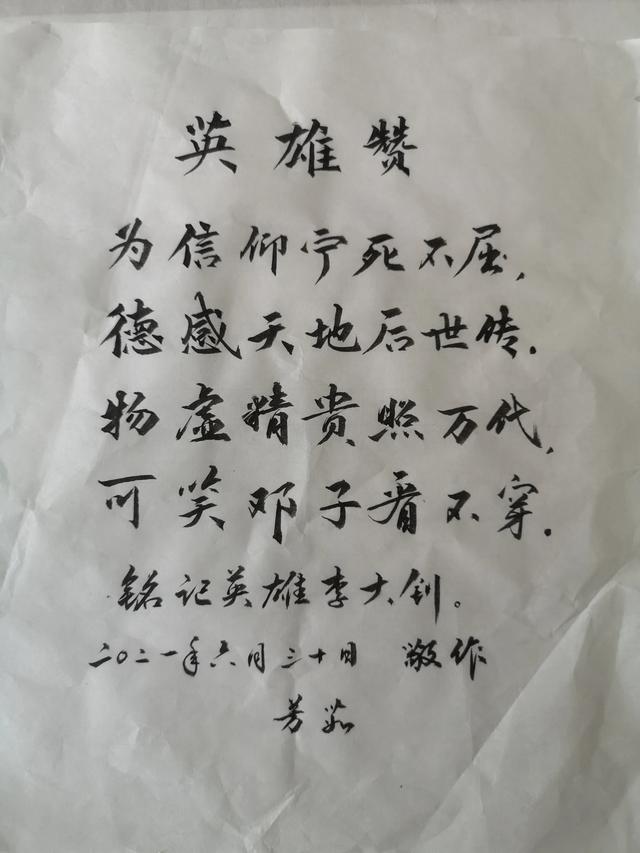 英雄赞
为信仰宁死不屈，
德感天地后世传．
物虚精贵照万代，
可笑邓子看不穿．
铭记英雄李大钊。
二〇二一年六月三十日 敬作
芳茹